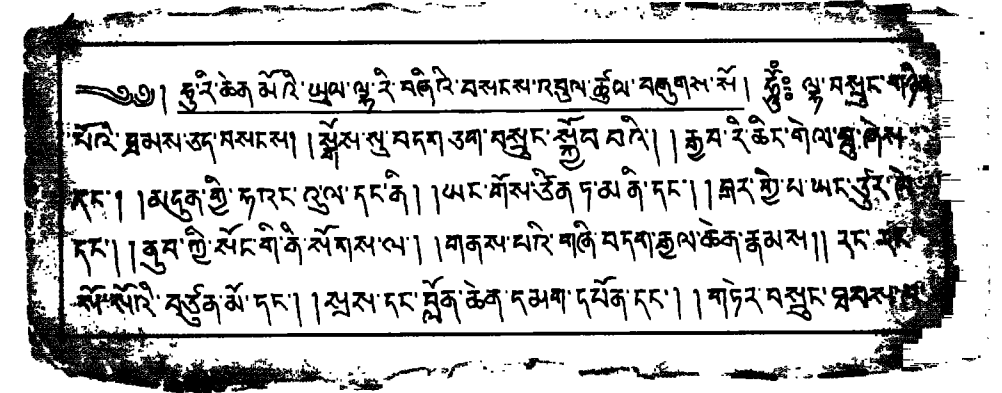 ༄༅། ཧུ་རི་ཆེན་མོའི་ཡུལ་ལྷ་རི་བཞིའི་བསངས་འབུལ་ཚུལ་བཞུགས་སོ། ཧཱུྃ༔ ལྷ་བསྲུང་གཉན་
པོའི་ཐམས་ཅད་བསངས། །སྒོས་སུ་བདག་ཅག་བསྲུང་སྐྱོབ་བའི། །རྒྱབ་རི་ཆིང་གེལ་ཐུ་ཞེས་
དང་། །མདུན་གྱི་དང་ནི། །ཡང་གོས་ཙིན་ཏ་མ་ནི་དང་། །གྱི་པ་ཡང་
དང་། །ནུབ་ཀྱི་སོང་གི་ནི་སོགས་ལ། །གནས་པའི་གཞི་བདག་རྒྱལ་ཆེན་རྣམས།། རང་རང་
སོ་སོའི་བཙུན་མོ་དང་། །སྲས་དང་བློན་ཆེན་དམག་དཔོན་དང་། །གཏེར་བསྲུང་ཐམས་